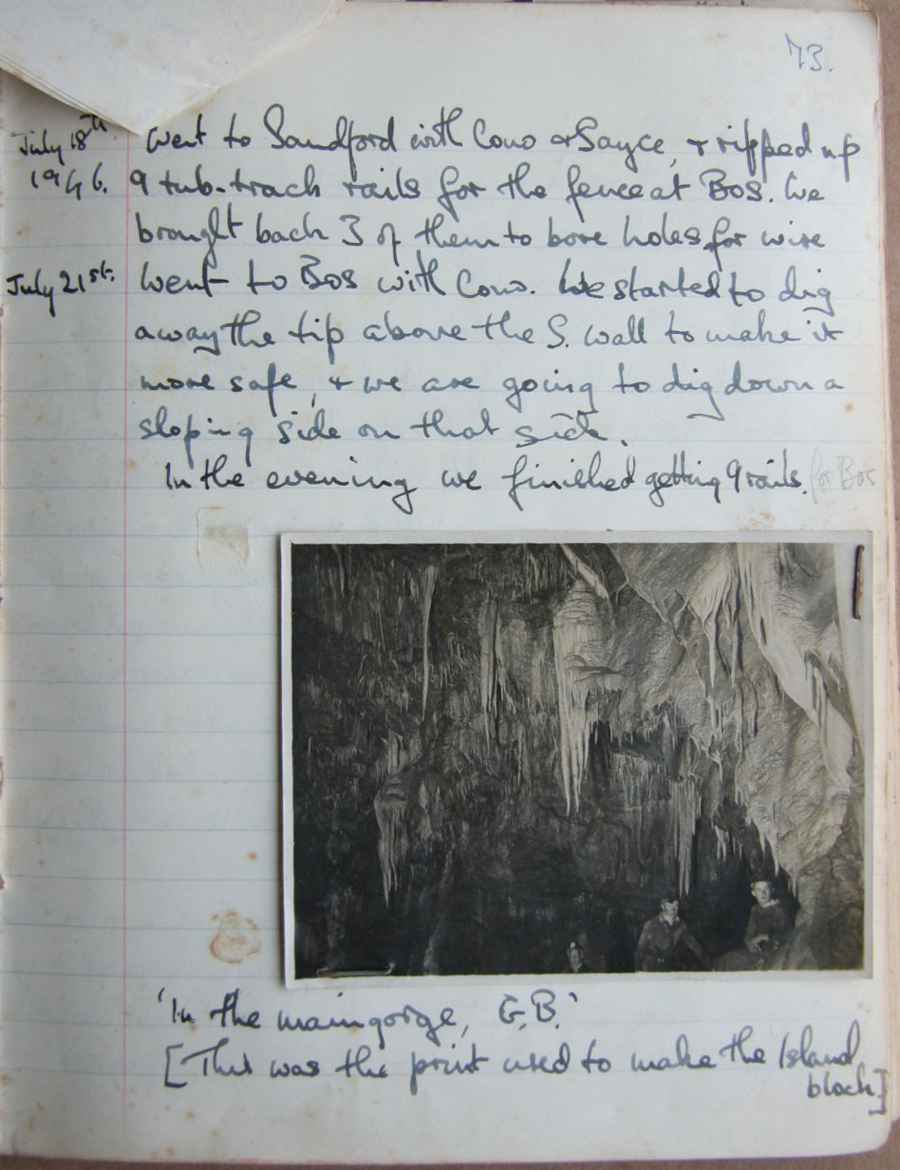 73.
July 18th Went to Sandford with Cow & Sayce, & ripped up
1946. 9 tub-track rails for the fence at Bos. We
brought back 3 of them to bore holes for wire
July 21st. Went to Bos with Cow. We started to dig
away the tip above the S. wall to make it
more safe, & we are going to dig down a
sloping side on that side.
In the evening we finished getting 9 rails. for Bos
'In the main gorge, G.B.'
[This was the print used to make the Island
block]